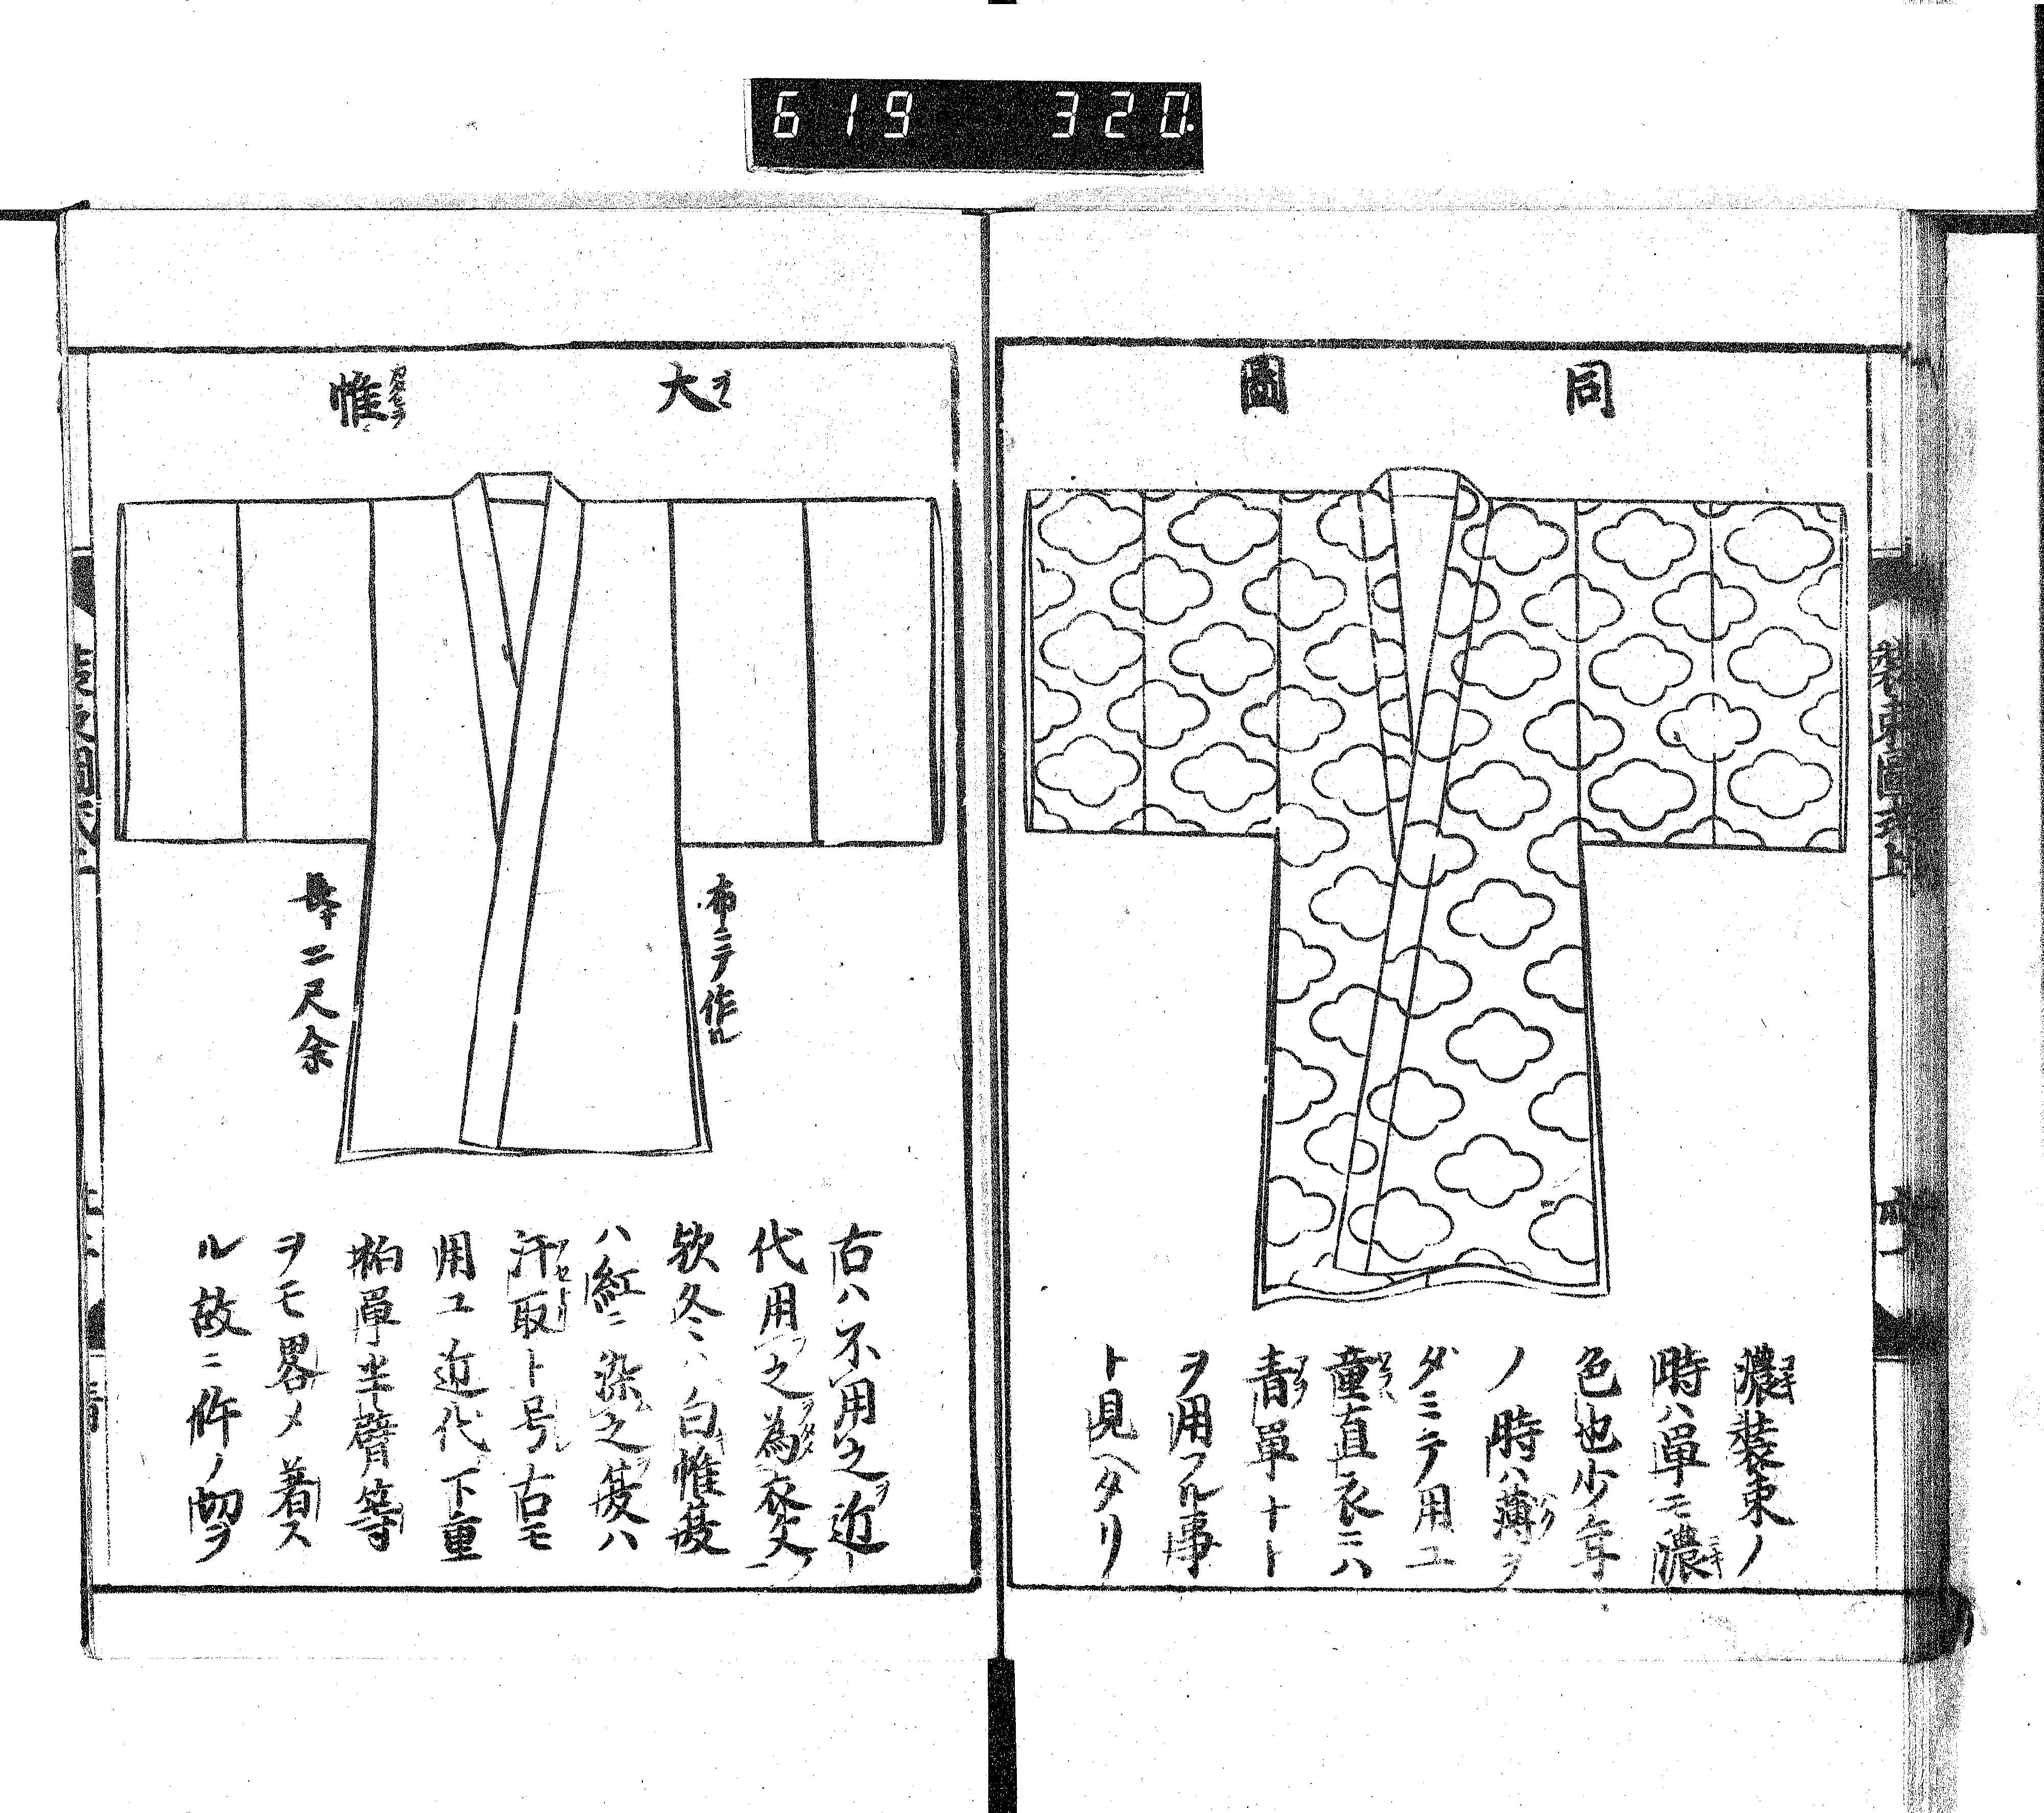 619 320
同圖
濃装束ノ
時ハ單ニ濃
色也少年
ノ時ハ薄ヲ
ダミニテ用ユ
童直衣ニハ
青單ナト
ヲ用フル事
ト見ヘタリ
大帷
布ニテ作ル
長サ二尺余
右ハ不用之近
代用之為衣文
欤冬ハ白帷夏
ハ紅ニ染之夏ハ
汗取ト号右モ
用ユ近代下重
袙單半臂等
ヲモ畧メ着ス
ル故ニ件ノ切ヲ